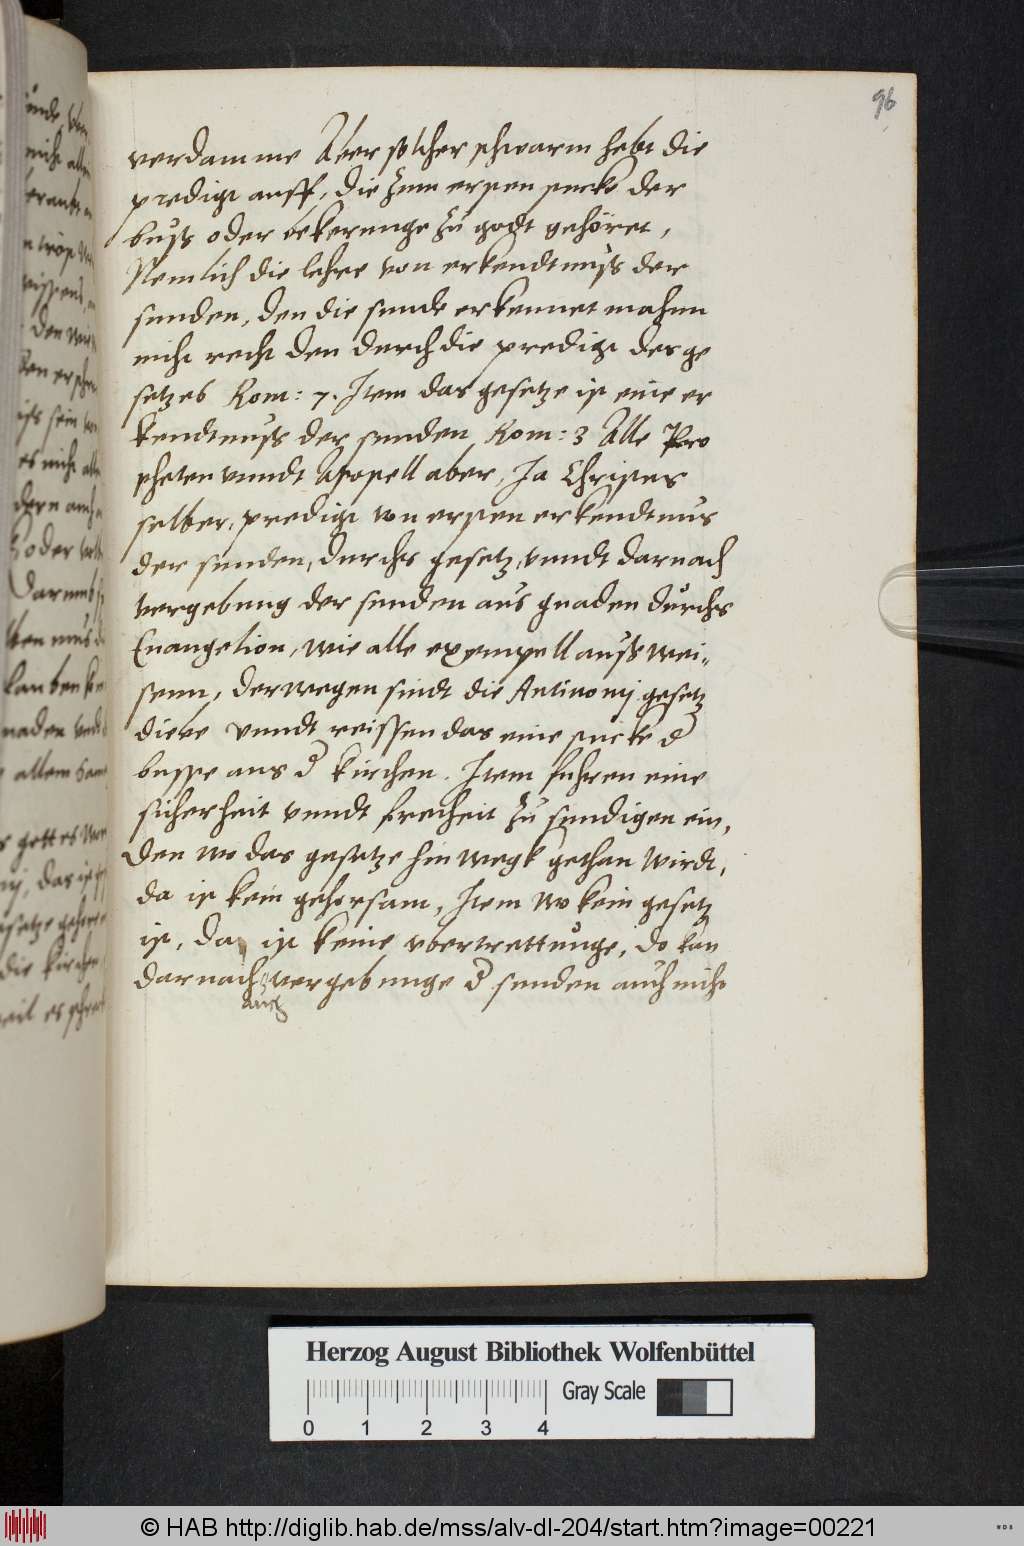 96
verdamme Aber solcher schwarm hebt die
predigt auff, die zum ersten stucke der
buß oder bekerunge zu godt gehöret,
Nemlich die lehre von erkendtnuß der
sunden, den die sunde erkennet mahnn
nicht recht den durch die predigt des ge
setzes Rom: 7. Item das gesetze ist eine er
kendtnuß der sunden, Rom: 3 Alle Pro
pheten vnndt Apostell aber, Ja Christus
selber, predigt von ersten erkendtnus
der sunden, durchs gesetz, vnndt darnach
vergebung der sunden aus gnaden durchs
Euangelion, wie alle exempell außwei„
senn, derwegen sindt die Antinomj gesetz
diebe vnndt reissen das eine stucke d
busse aus d kirchen. Item fuhren eine
sicherheit vnndt frecheit zu sundigen ein,
Den wo das gesetze hinwegk gethan wirdt,
da ist kein gehorsam, Item wo kein gesetz
ist, da ist keine vbertrettunge, do kan
darnach vergebunge d sunden auch nicht
auch
Herzog August Bibliothek Wolfenbüttel
0 1 2 3 4 Gray Scale
© HAB http://diglib.hab.de/mss/alv-dl-204/start.htm?image=00221